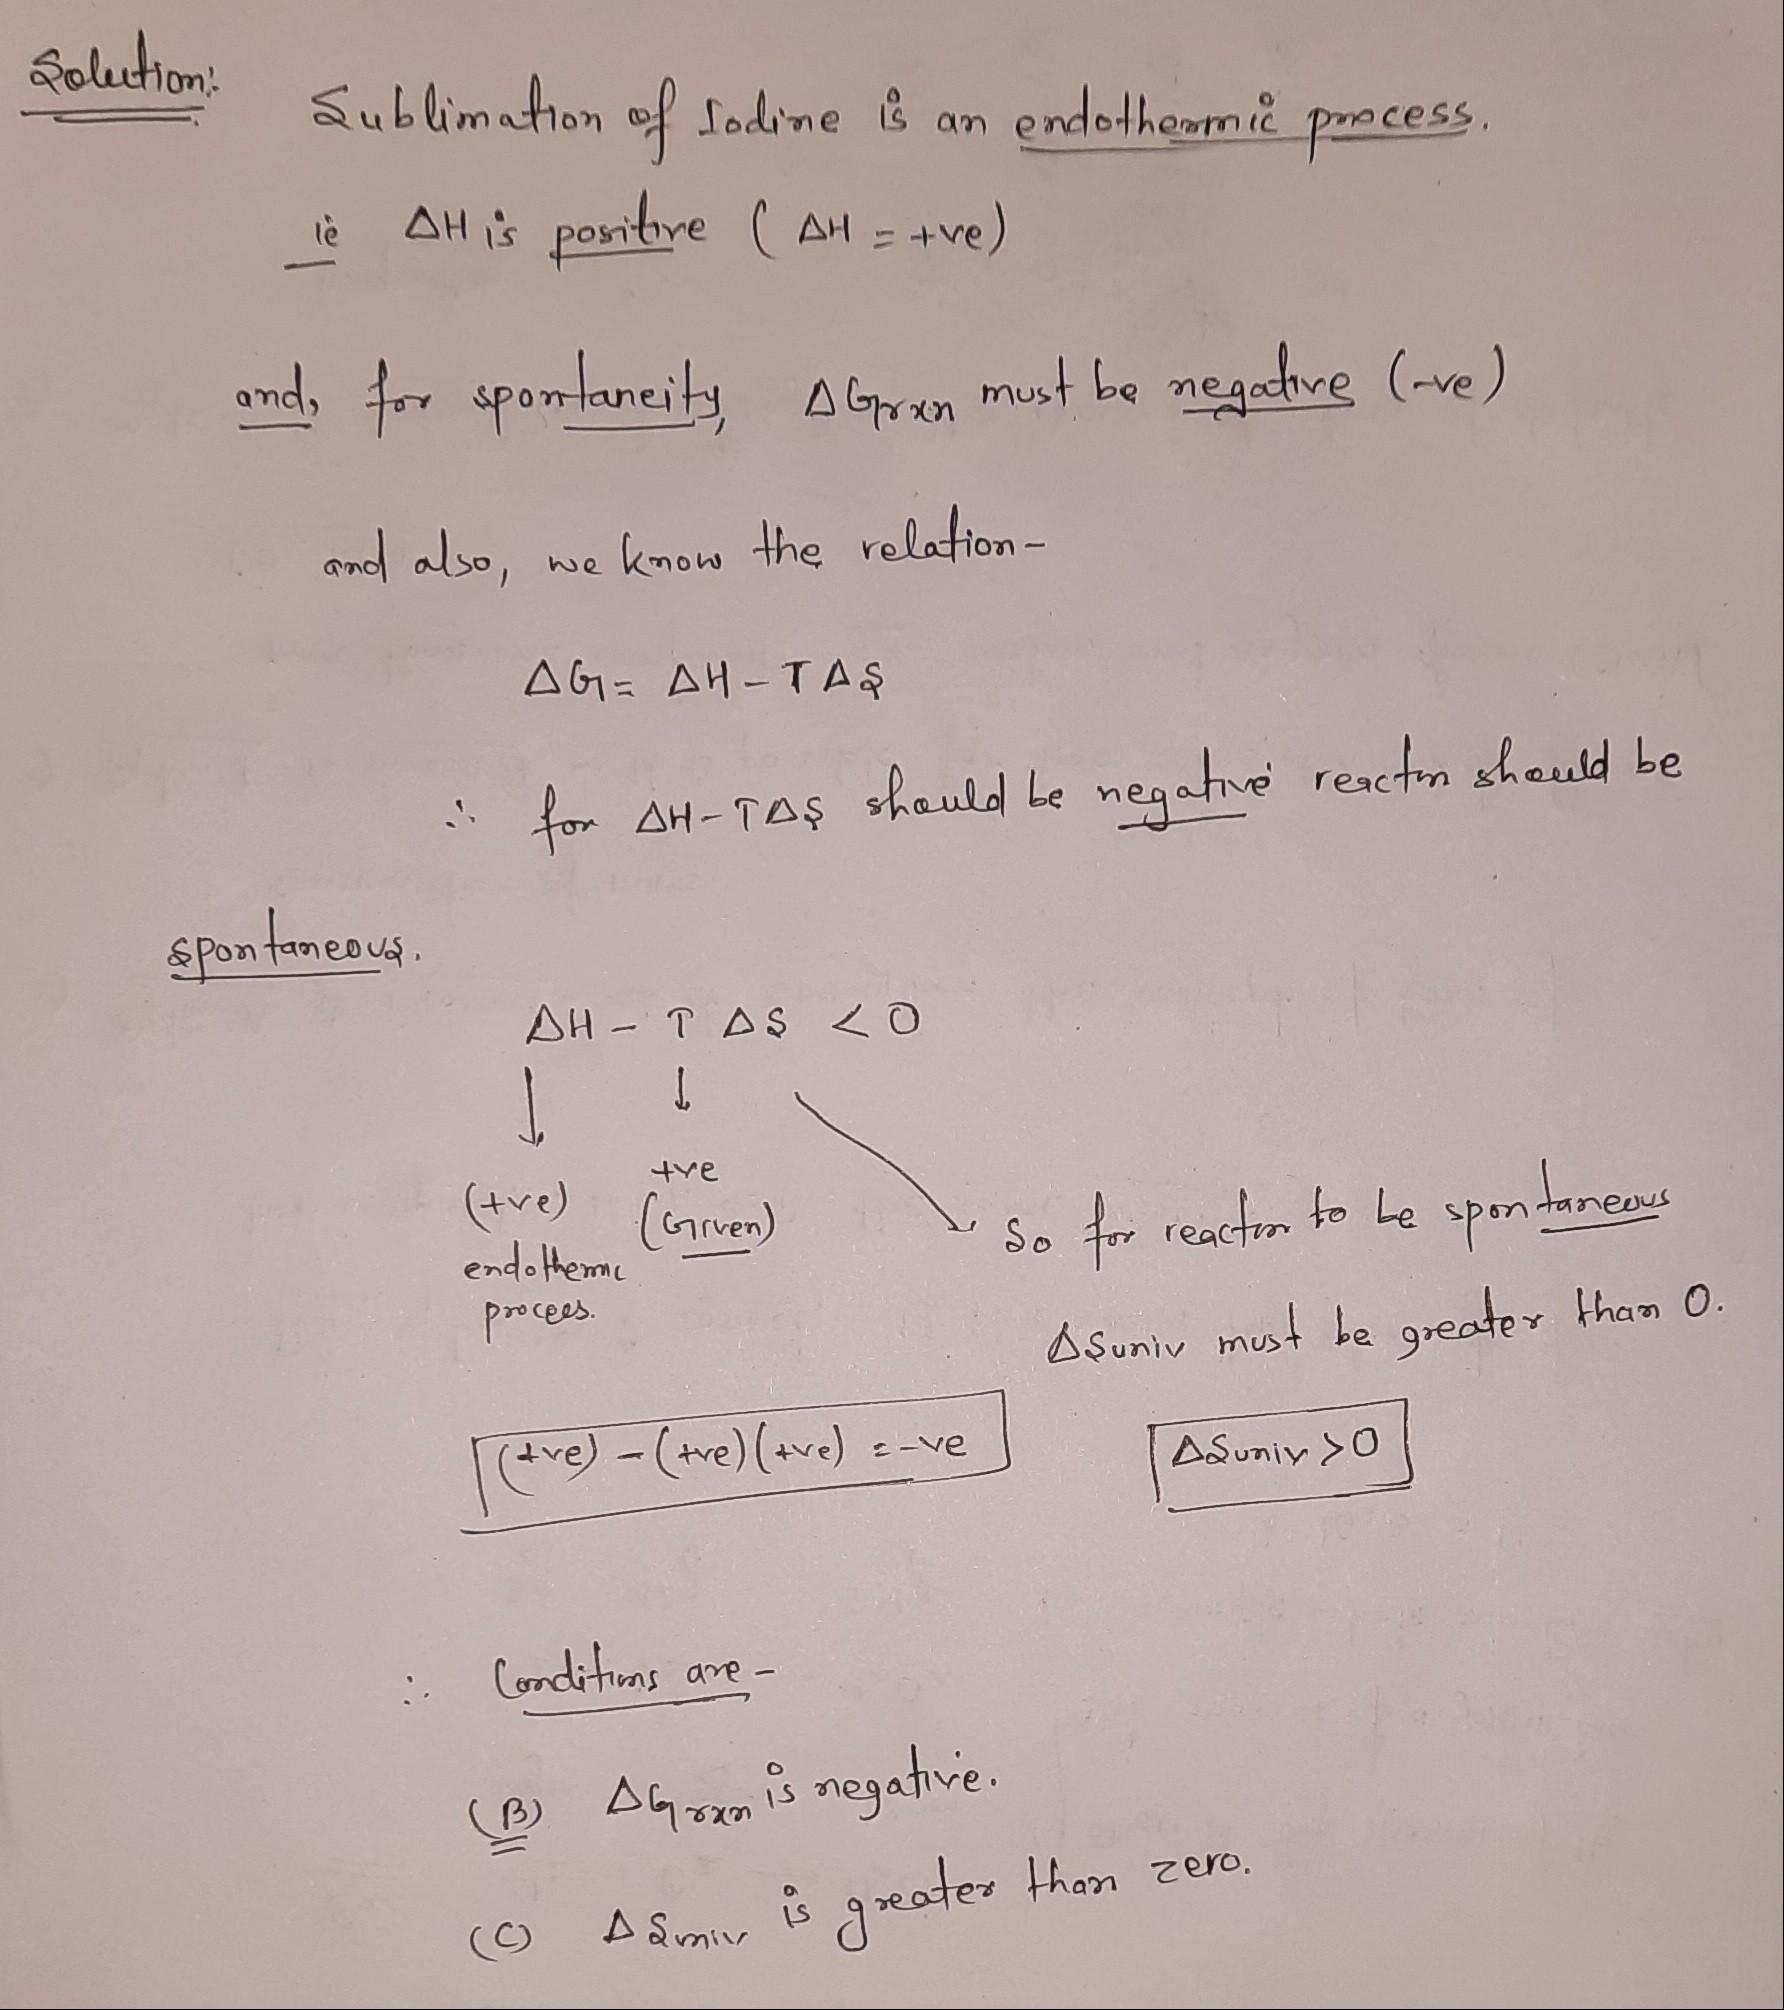 Solution:
Sublimation of Iodine is an endothermic process.
ie ΔH is positive (ΔH = +ve)
and, for spontaneity, ΔGrxn must be negative (-ve)
and also, we know the relation-
ΔG = ΔH - TΔS
∴ for ΔH - TΔS should be negative reactn should be
spontaneous.
ΔH - T ΔS < 0
↓ ↓
(+ve) +ve
endothermic (Given)
procees.
So for reacton to be spontaneous
ΔSuniv must be greater than 0.
(+ve) - (+ve)(+ve) = -ve
ΔSuniv > 0
∴ Conditions are -
(B) ΔGrxn is negative.
(C) ΔSuniv is greater than zero.